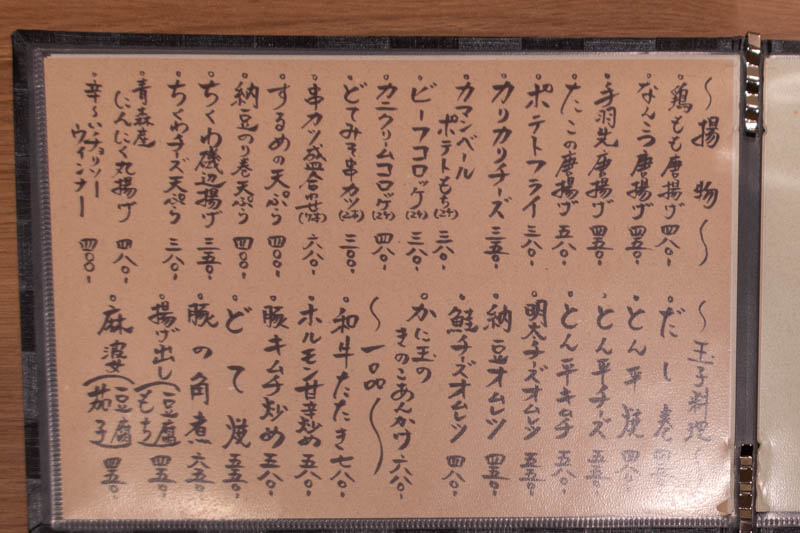 〜揚物〜
鶏もも唐揚げ 四八〇
なんこつ唐揚げ 四五〇
手羽先唐揚げ 四五〇
たこの唐揚げ 五八〇
ポテトフライ 三八〇
カリカリチーズ 三五〇
カマンベール
ポテトもち(2ケ) 三八〇
ビーフコロッケ(2ケ) 三八〇
カニクリームコロッケ(2ケ) 四八〇
どてみそ串カツ(2本) 三〇〇
串カツ盛合わせ 六八〇
するめの天ぷら 四〇〇
納豆のり巻天ぷら 四〇〇
ちくわ磯辺揚げ 三五〇
ちくわチーズ天ぷら 三八〇
青森産
にんにく丸揚げ 四八〇
辛〜いチョリソー
ウインナー 四〇〇
〜玉子料理〜
だし巻
とん平焼 四八〇
とん平チーズ 五五〇
とん平キムチ 五八〇
明太チーズオムレツ 五五〇
納豆オムレツ 四五〇
鮭チーズオムレツ 四八〇
かに玉の
きのこあんかけ 六八〇
〜一品〜
和牛たたき 七八〇
ホルモン甘辛炒め 五八〇
豚キムチ炒め 五八〇
どて焼 五五〇
豚の角煮 六五〇
揚げ出し(豆腐 もち) 四五〇
麻婆(豆腐 茄子) 四五〇